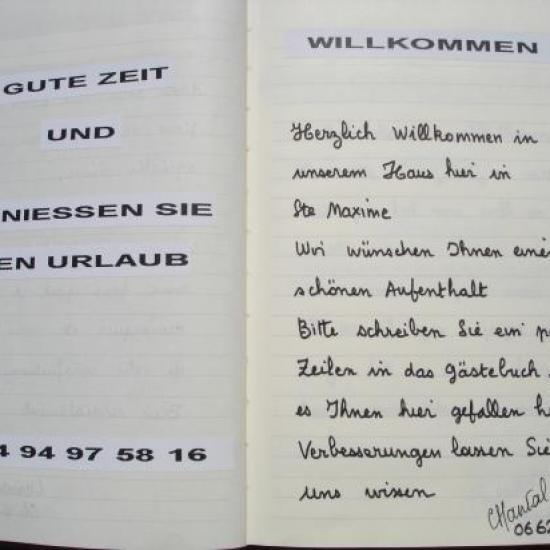 GUTE ZEIT
UND
NIESSEN SIE
EN URLAUB
4 94 97 58 16
WILLKOMMEN
Herzlich Willkommen in
unserem Haus hier in
Ste Maxime
Wir wünschen Ihnen einen
schönen Aufenthalt
Bitte schreiben Sie ein p
Zeilen in das Gästebuch
es Ihnen hier gefallen h
Verbesserungen lassen Sie
uns wissen
Chantal
0662